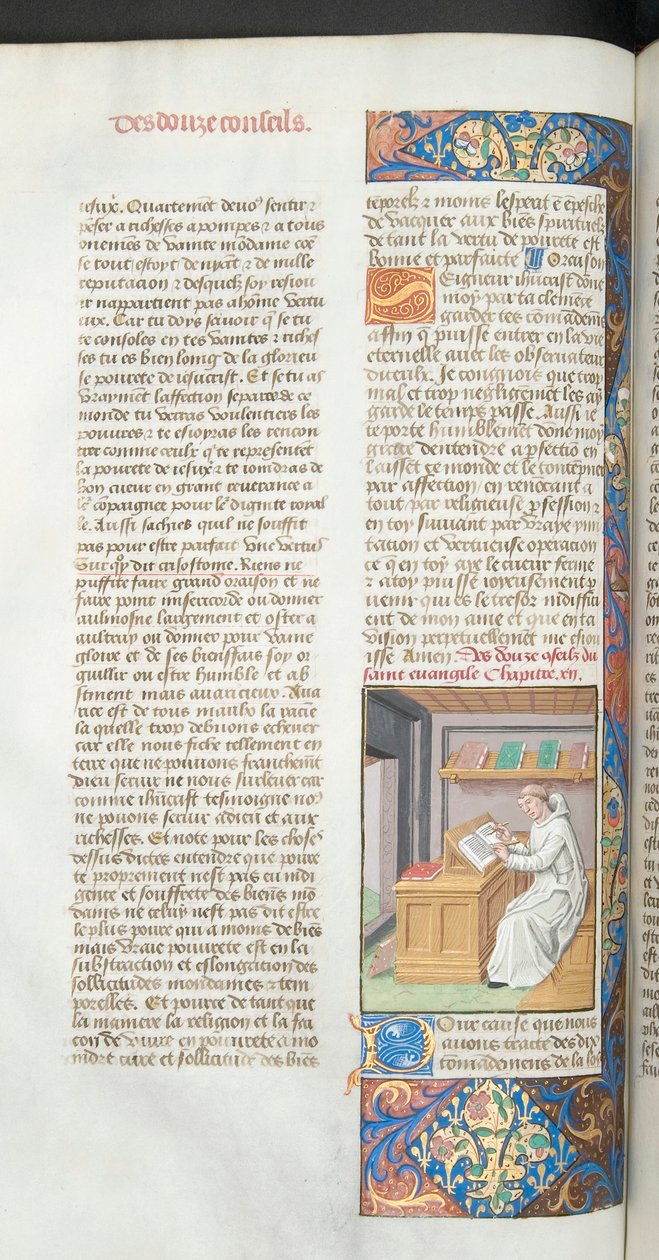 Des douze conseils.
Quartemēt devōs sentir ⁊
pēser a richesses a pompes ⁊ a tous
de vanite mōdaine cōe
se tout estoyt de nyant ⁊ de mille
reputacion ⁊ desquelz soy resiou
ir nappartient pas a hōme vertu
eux. Car tu doys scavoir q̄ se tu
te consoles en tes vanites ⁊ riches
ses tu es bien loing de la glorieu
se povrete de iesucrist. Et se tu as
vrayment laffection separee de ce
monde tu verras voulentiers les
povures ⁊ te esioyras les rencon
trer comme ceulx q̄ te representēt
la povrete de iesux̄ ⁊ te ioindras de
bon cueur en grant reverance a
le cōpaignee pour le dignite royal
le. Aussi saches quil ne souffit
pas pour estre parfait une vertus
Sur qy dit crisostome. Riens ne
puffite faire grand oraison et ne
faire point misericorde ou donner
aulmosne largement et oster a
aultruy ou donner pour vaine
gloire et de ses bienffais soy or
guillir ou estre humble et ab
stinent mais avaricieux. Ava
rice est de tous maulx la racie
la quelle trop debvons echever
car elle nous fiche tellement en
terre que ne povons franchemēt
dieu servir ne nous surlever car
comme ihūcrist tesmoigne no9
ne povons servir a dieu et aux
richesses. Et note pour les choses
dessus dictes entendre que povre
te proprement nest pas en indi
gence et souffrete des biens mō
dains ne celuy nest pas dit estre
le plus povre qui a moins de biēs
mais vraie pouvrete est en la
substraction et eslongacion des
sollicitudes mondaines ⁊ tem
porelles. Et pource de tant que
la maniere la religion et la fa
con de vivre en pouvrete a mo
indre cure et sollicitude des biēs
tēporelz ⁊ moins lesperit ē ēpesche
de vacquer aux biēs spirituelz
de tant la vertu de povrete est
bonne et parfaicte Oraison
Seigneur ihūcrist done
moy par ta clemēce
garder tes com̄adem̄s
affin q̄ puisse entrer en la vie
eternelle avec les observateurs
diceulx. Je congnois que trop
mal et trop negligemēt les ay
garde le temps passe. Aussi ie
te porte humblement done moy
grace dentendre a pfectiō en
laisset ce monde et le contēpner
par affection, en renōcant a
tout par religieuse pfession ⁊
en toy suivant par vraye ymi
tacion et vertueuse operacion
ce q̄ en toy aye le cueur ferme
⁊ a toy puisse ioyeusement p
venir qui es le tresor indiffici
ent de mon ame et que en ta
vision perpetuellemēt me esiou
isse Amen. Des douze ⁊seilz du
saint euangile Chapitre .xii.
Pour cause que nous
avons traicte des dix
com̄ademens de la loy